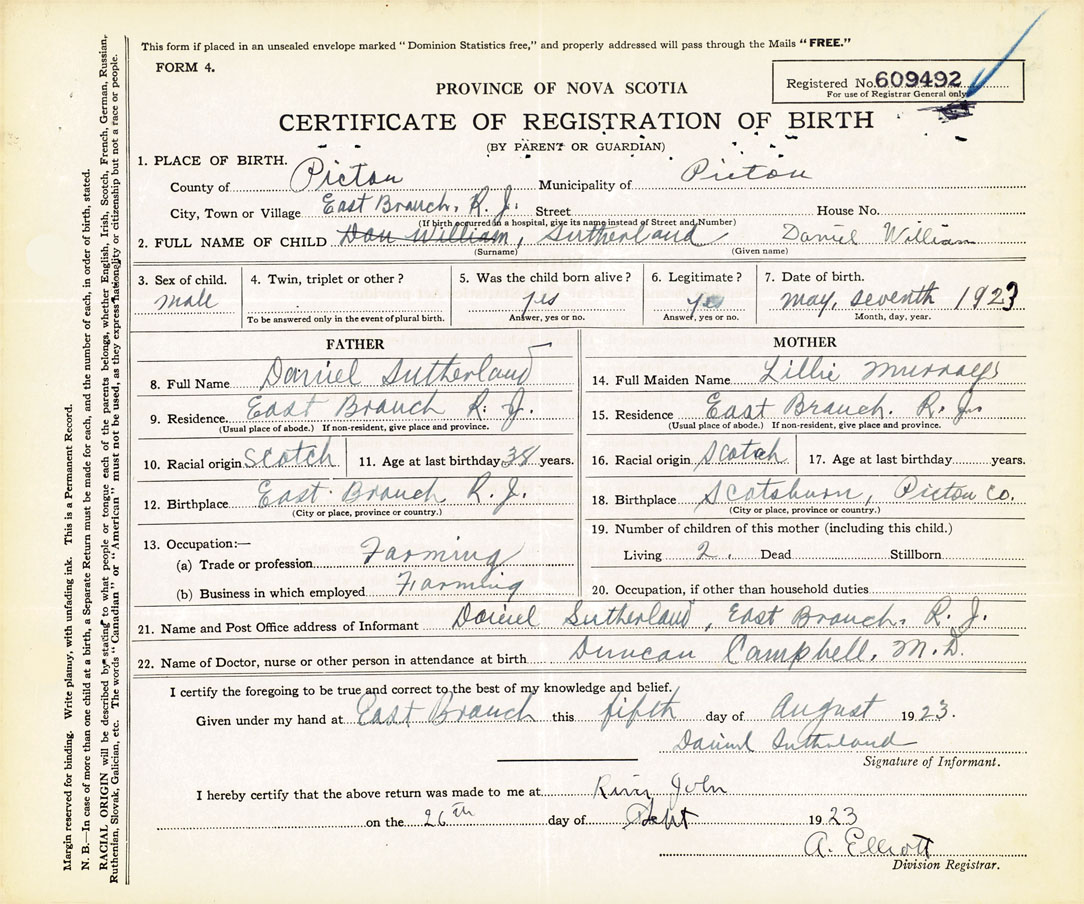 This form if placed in an unsealed envelope marked "Dominion Statistics free," and properly addressed will pass through the Mails "FREE."
FORM 4.
Registered No. 609492
For use of Registrar General only
PROVINCE OF NOVA SCOTIA
CERTIFICATE OF REGISTRATION OF BIRTH
(BY PARENT OR GUARDIAN)
1. PLACE OF BIRTH.
County of Pictou Municipality of Pictou
City, Town or Village East Branch, R. J. Street House No.
(If birth occurred in a hospital, give its name instead of Street and Number)
2. FULL NAME OF CHILD Dan William, Sutherland Daniel William
(Surname) (Given name)
3. Sex of child. 4. Twin, triplet or other? 5. Was the child born alive? 6. Legitimate? 7. Date of birth.
male yes yes may, seventh 1923
To be answered only in the event of plural birth. Answer, yes or no. Answer, yes or no. Month, day, year.
FATHER
8. Full Name Daniel Sutherland
9. Residence. East Branch R. J.
(Usual place of abode.) If non-resident, give place and province.
10. Racial origin Scotch 11. Age at last birthday 38 years.
12. Birthplace East Branch R. J.
(City or place, province or country.)
13. Occupation:—
(a) Trade or profession Farming
(b) Business in which employed Farming
MOTHER
14. Full Maiden Name Lillie Murray
15. Residence East Branch. R. J.
(Usual place of abode.) If non-resident, give place and province.
16. Racial origin Scotch 17. Age at last birthday years.
18. Birthplace Scotsburn, Pictou Co.
(City or place, province or country.)
19. Number of children of this mother (including this child.)
Living 2. Dead Stillborn
20. Occupation, if other than household duties
21. Name and Post Office address of Informant Daniel Sutherland, East Branch, R. J.
22. Name of Doctor, nurse or other person in attendance at birth Duncan Campbell, M.D.
I certify the foregoing to be true and correct to the best of my knowledge and belief.
Given under my hand at East Branch this fifth day of August 1923.
Daniel Sutherland
Signature of Informant.
I hereby certify that the above return was made to me at River John
on the 26th day of Sept 1923
A. Elliott
Division Registrar.
Margin reserved for binding. Write plainly, with unfading ink. This is a Permanent Record.
N. B.—In case of more than one child at a birth, a Separate Return must be made for each, and the number of each, in order of birth, stated.
RACIAL ORIGIN will be described by stating to what people or tongue each of the parents belongs, whether English, Irish, Scotch, French, German, Russian,
Ruthenian, Slovak, Galician, etc. The words "Canadian" or "American" must not be used, as they express nationality or citizenship but not a race or people.